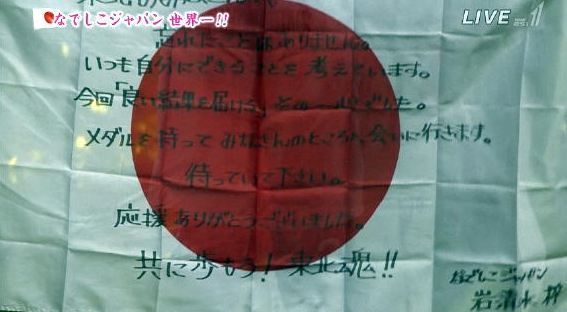 なでしこジャパン 世界一!!
LIVE
忘れたことはありません。
いつも自分にできることを考えています。
今回「良い結果を届ける」その一心でした。
メダルを持ってみなさんのところへ会いに行きます。
待っていて下さい。
応援ありがとうございました。
共に歩もう!東北魂!!
なでしこジャパン
岩清水 梓